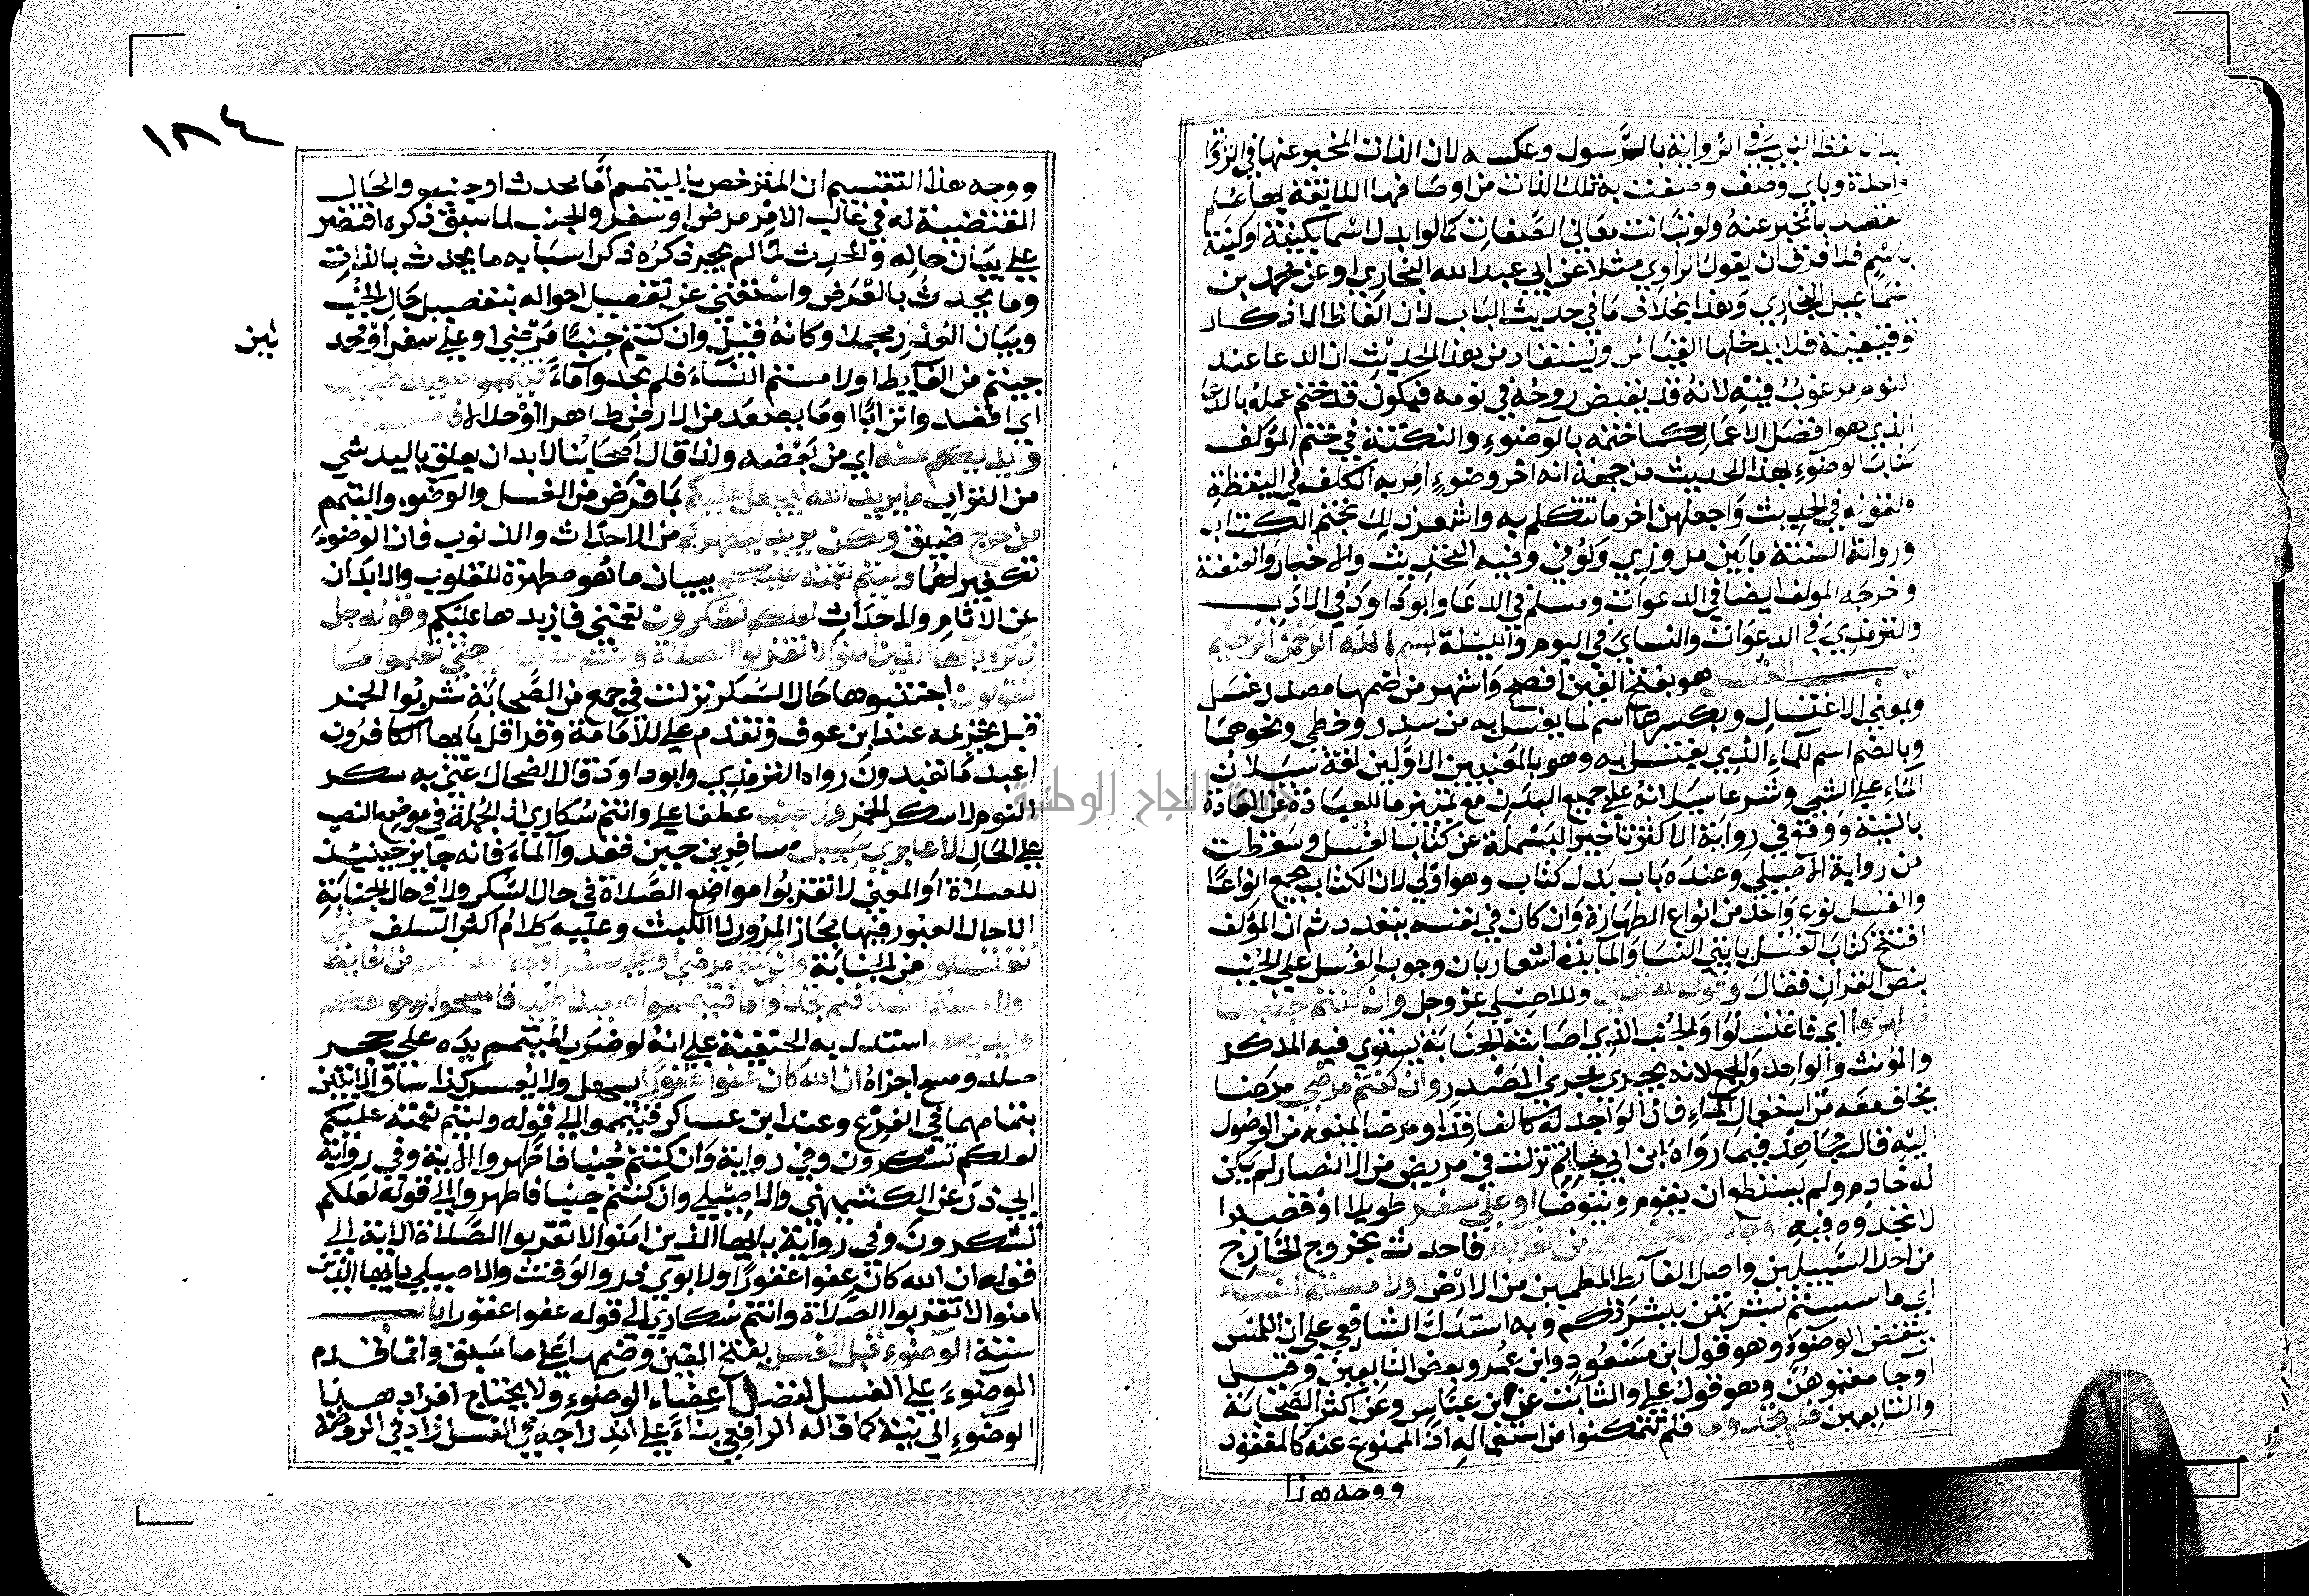 بدل لفظ النبي في الرواية بالرسول وعكسه لان الذات المخبر عنها في الروا
واحدة وباي وصف وصفت به تلك الذات من اوصافها اللايقة بها علم
القصد بالمخبر عنه ولو تباينت معاني الصفات كما لو ابدل اسما بكنية او كنية
باسم فلا فرق ان يقول الراوي مثلا عن ابي عبد الله البخاري او عن محمد بن
اسماعيل البخاري وهذا بخلاف ما في حديث الباب لان الفاظ الاذكار
توقيفية فلا يدخلها القياس ويستفاد من هذا الحديث ان الدعا عند
النوم مرغوب فيه لانه قد يقبض روحه في نومه فيكون قد ختم عمله بالدعا
الذي هو افضل الاعمال كما ختمه بالوضوء والنكتة في ختم المؤلف
كتاب الوضوء بهذا الحديث من جهة انه اخر وضوء امر به المكلف في اليقظة
ولقوله في الحديث واجعلهن اخر ما تتكلم به واشعر ذلك بختم الكتاب
ورواة الستة ما بين مروزي وكوفي وفيه التحديث والاخبار والعنعنة
واخرجه المولف ايضا في الدعوات ومسلم في الدعا وابو داود في الادب
والترمذي في الدعوات والنساي في اليوم والليلة بسم الله الرحمن الرحيم
كتاب الغسل هو بفتح الغين افصح واشهر من ضمها مصدر غسل
وبمعني الاغتسال وبكسرها اسم لما يغسل به من سدر وخطمي ونحوهما
وبالضم اسم للماء الذي يغتسل به وهو بالمعنيين الاولين لغة سيلان
الماء علي الشي وشرعا سيلانه علي جميع البدن مع تمييز ما للعبادة عن العادة
بالنية ووقع في رواية الاكثر تاخير البسملة عن كتاب الغسل وسقطت
من رواية الاصيلي وعنده باب بدل كتاب وهو اولي لان الكتاب يجمع انواعا
والغسل نوع واحد من انواع الطهارة وان كان في نفسه يتعدد ثم ان المؤلف
افتتح كتاب الغسل بايتي النسا والمايدة اشعارا بان وجوب الغسل علي الجنب
بنص القران فقال وقول الله تعالي وللاصيلي عز وجل وان كنتم جنبا
فاطهروا اي فاغتسلوا والجنب الذي اصابته الجنابة يستوي فيه المذكر
والمونث والواحد والجمع لانه يجري مجري المصدر وان كنتم مرضي مرضا
يخاف معه من استعمال الماء فان الواجد له كالفاقد او مرضا يمنعه من الوصول
اليه قال مجاهد فيما رواه ابن ابي حاتم نزلت في مريض من الانصار لم يكن
له خادم ولم يستطع ان يقوم ويتوضا او علي سفر طويلا او قصيرا
لا تجدوه فيه او جاء احد منكم من الغايط فاحدث بخروج الخارج
من احد السبيلين واصل الغآئط المطمين من الارض او لامستم النساء
اي ماسستم بشرتهن ببشرتكم وبه استدل الشافعي علي ان اللمس
ينقض الوضوء وهو قول ابن مسعود وابن عمر وبعض التابعين وقيل
او جامعتموهن وهو قول علي والثابت عن ابن عباس وعن اكثر الصحابة
والتابعين فلم تجدوا ما فلم تتمكنوا من استعماله اذ الممنوع عنه كالمفقود
ووجه هذا
١٨٤
ووجه هذا التقسيم ان المترخص بالتيمم اما محدث او جنب والحال
المقتضية له في غالب الامر مرض او سفر والجنب لما سبق ذكره اقتصر
علي بيان حاله والمحدث لما لم يجر ذكره ذكر اسبابه ما يحدث بالذات
وما يحدث بالعرض واستغني عن تفصيل احواله بتفصيل حال الجنب
وبيان العذر مجملا وكانه قيل وان كنتم جنبا مرضي او علي سفر او محد
ثين
جيتم من الغآيط او لامستم النساء فلم تجدوا ماء فتيمموا صعيدا طيبا
اي اقصدوا ترابا او ما يصعد من الارض طاهرا او حلالا
وايديكم منه اي من بعضه ولذا قال اصحابنا لابد ان يعلق باليد شي
من التراب ما يريد الله ليجعل عليكم بما فرض من الغسل والوضوء والتيمم
من حرج ضيق ولكن يريد ليطهركم من الاحداث والذنوب فان الوضوء
تكفير لهما وليتم نعمته عليكم ببيان ما هو مطهرة للقلوب والابدان
عن الآثام والاحداث لعلكم تشكرون نعمتي فازيدها عليكم وقوله جل
ذكره يا ايها الذين امنوا لا تقربوا الصلاة وانتم سكاري حتي تعلموا ما
تقولون اجتنبوها حال السكر نزلت في جمع من الصحابة شربوا الخمر
قبل تحريمه عند ابن عوف وتقدم علي للامامة وقرا قل يا ايها الكافرون
اعبد ما تعبدون رواه الترمذي وابو داود قال الضحاك عني به سكر
النوم لا سكر الخمر ولا جنبا عطفا علي وانتم سكاري اذ الجملة في موضع النصب
علي الحال الا عابري سبيل مسافرين حين فقدوا الماء فانه جايز حينيذ
للصلاة او المعني لا تقربوا مواضع الصلاة في حال السكر ولا في حال الجنابة
الا حال العبور فيها بجاز المرور لا اللبث وعليه كلام اكثر السلف حتي
تغتسلوا من الجنابة وان كنتم مرضي او علي سفر او جاء احد منكم من الغايط
او لامستم النساء فلم تجدوا ما فتيمموا صعيدا طيبا فامسحوا بوجوهكم
وايديكم استدل به الحنفية علي انه لو ضرب المتيمم يده علي حجر
صلد ومسح اجزاه ان الله كان عفوا غفورا يسهل ولا يعسر كذا ساق الايتين
بتمامهما في الفرع وعند ابن عساكر فتيمموا الي قوله وليتم نعمته عليكم
لعلكم تشكرون وفي رواية وان كنتم جنبا فاطهروا الاية وفي رواية
ابي ذر عن الكشميهني والاصيلي وان كنتم جنبا فاطهروا الي قوله لعلكم
تشكرون وفي رواية يا ايها الذين امنوا لا تقربوا الصلاة الاية الي
قوله ان الله كان عفوا غفورا ولابوي ذر والوقت والاصيلي يا ايها الذين
امنوا لا تقربوا الصلاة وانتم سكاري الي قوله عفوا غفورا باب
سنة الوضوء قبل الغسل بفتح الغين وضمها علي ما سبق وانما قدم
الوضوء علي الغسل لفضل اعضاء الوضوء ولا يحتاج افراد هذا
الوضوء الي نية كما قاله الرافعي بناء علي اندراجه في الغسل زاد في الروضة